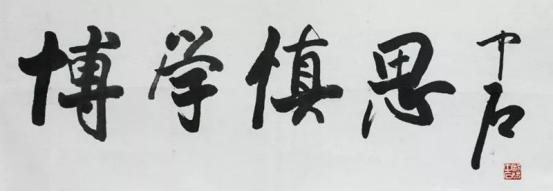 博学慎思
中石